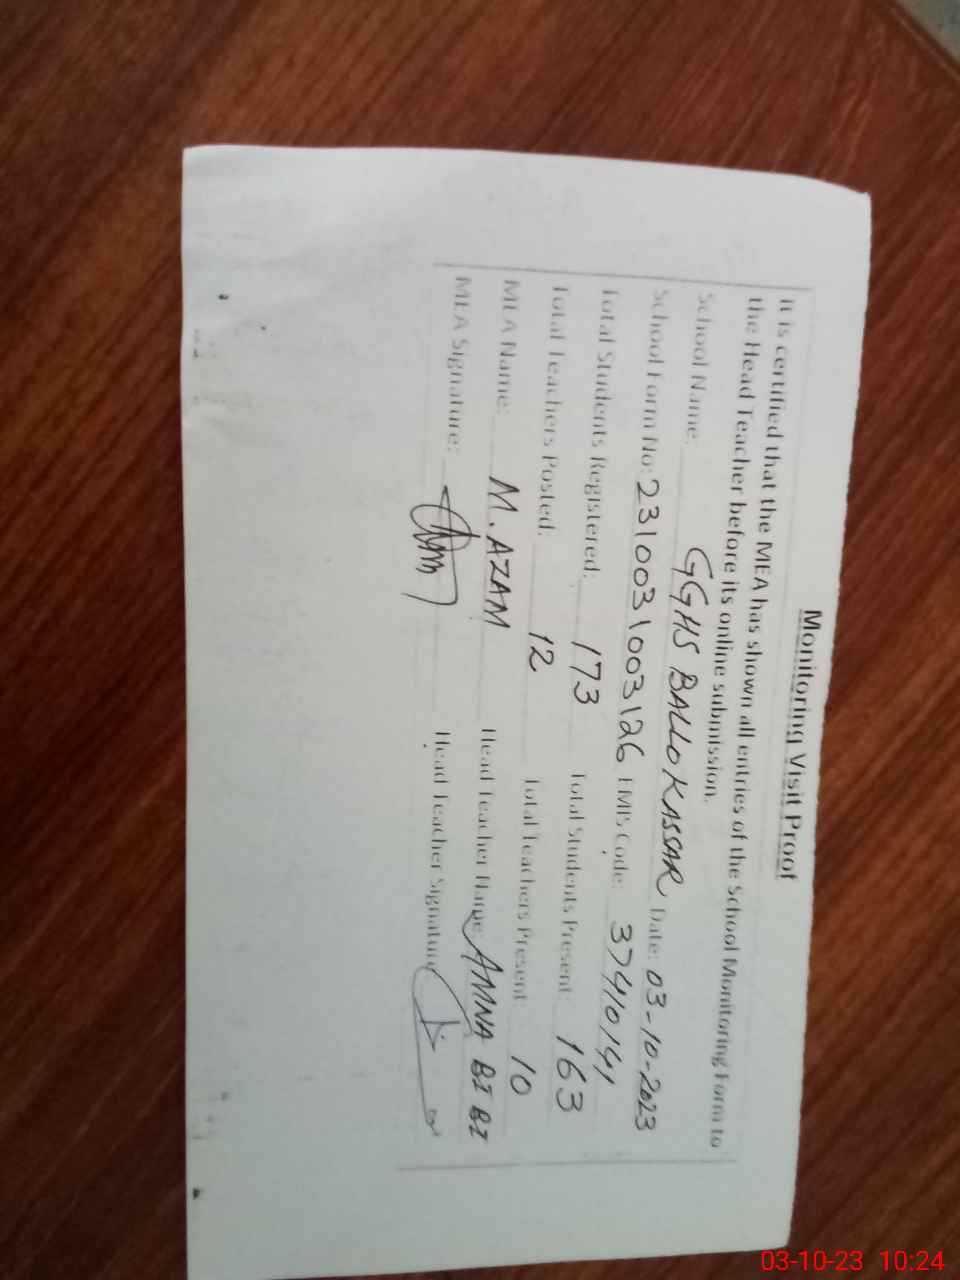 Monitoring Visit Proof
It is certified that the MEA has shown all entries of the School Monitoring Form to
the Head Teacher before its online submission.
School Name: GGHS BALLO KASSAR Date: 03-10-2023
School Form No: 2310031003126 EMIS Code: 37410141
Total Students Registered: 173 Total Students Present: 163
Total Teachers Posted: 12 Total Teachers Present: 10
MEA Name: M. AZAM Head Teacher Name: AMNA BI BI
MEA Signature: Head Teacher Signature
03-10-23 10:24